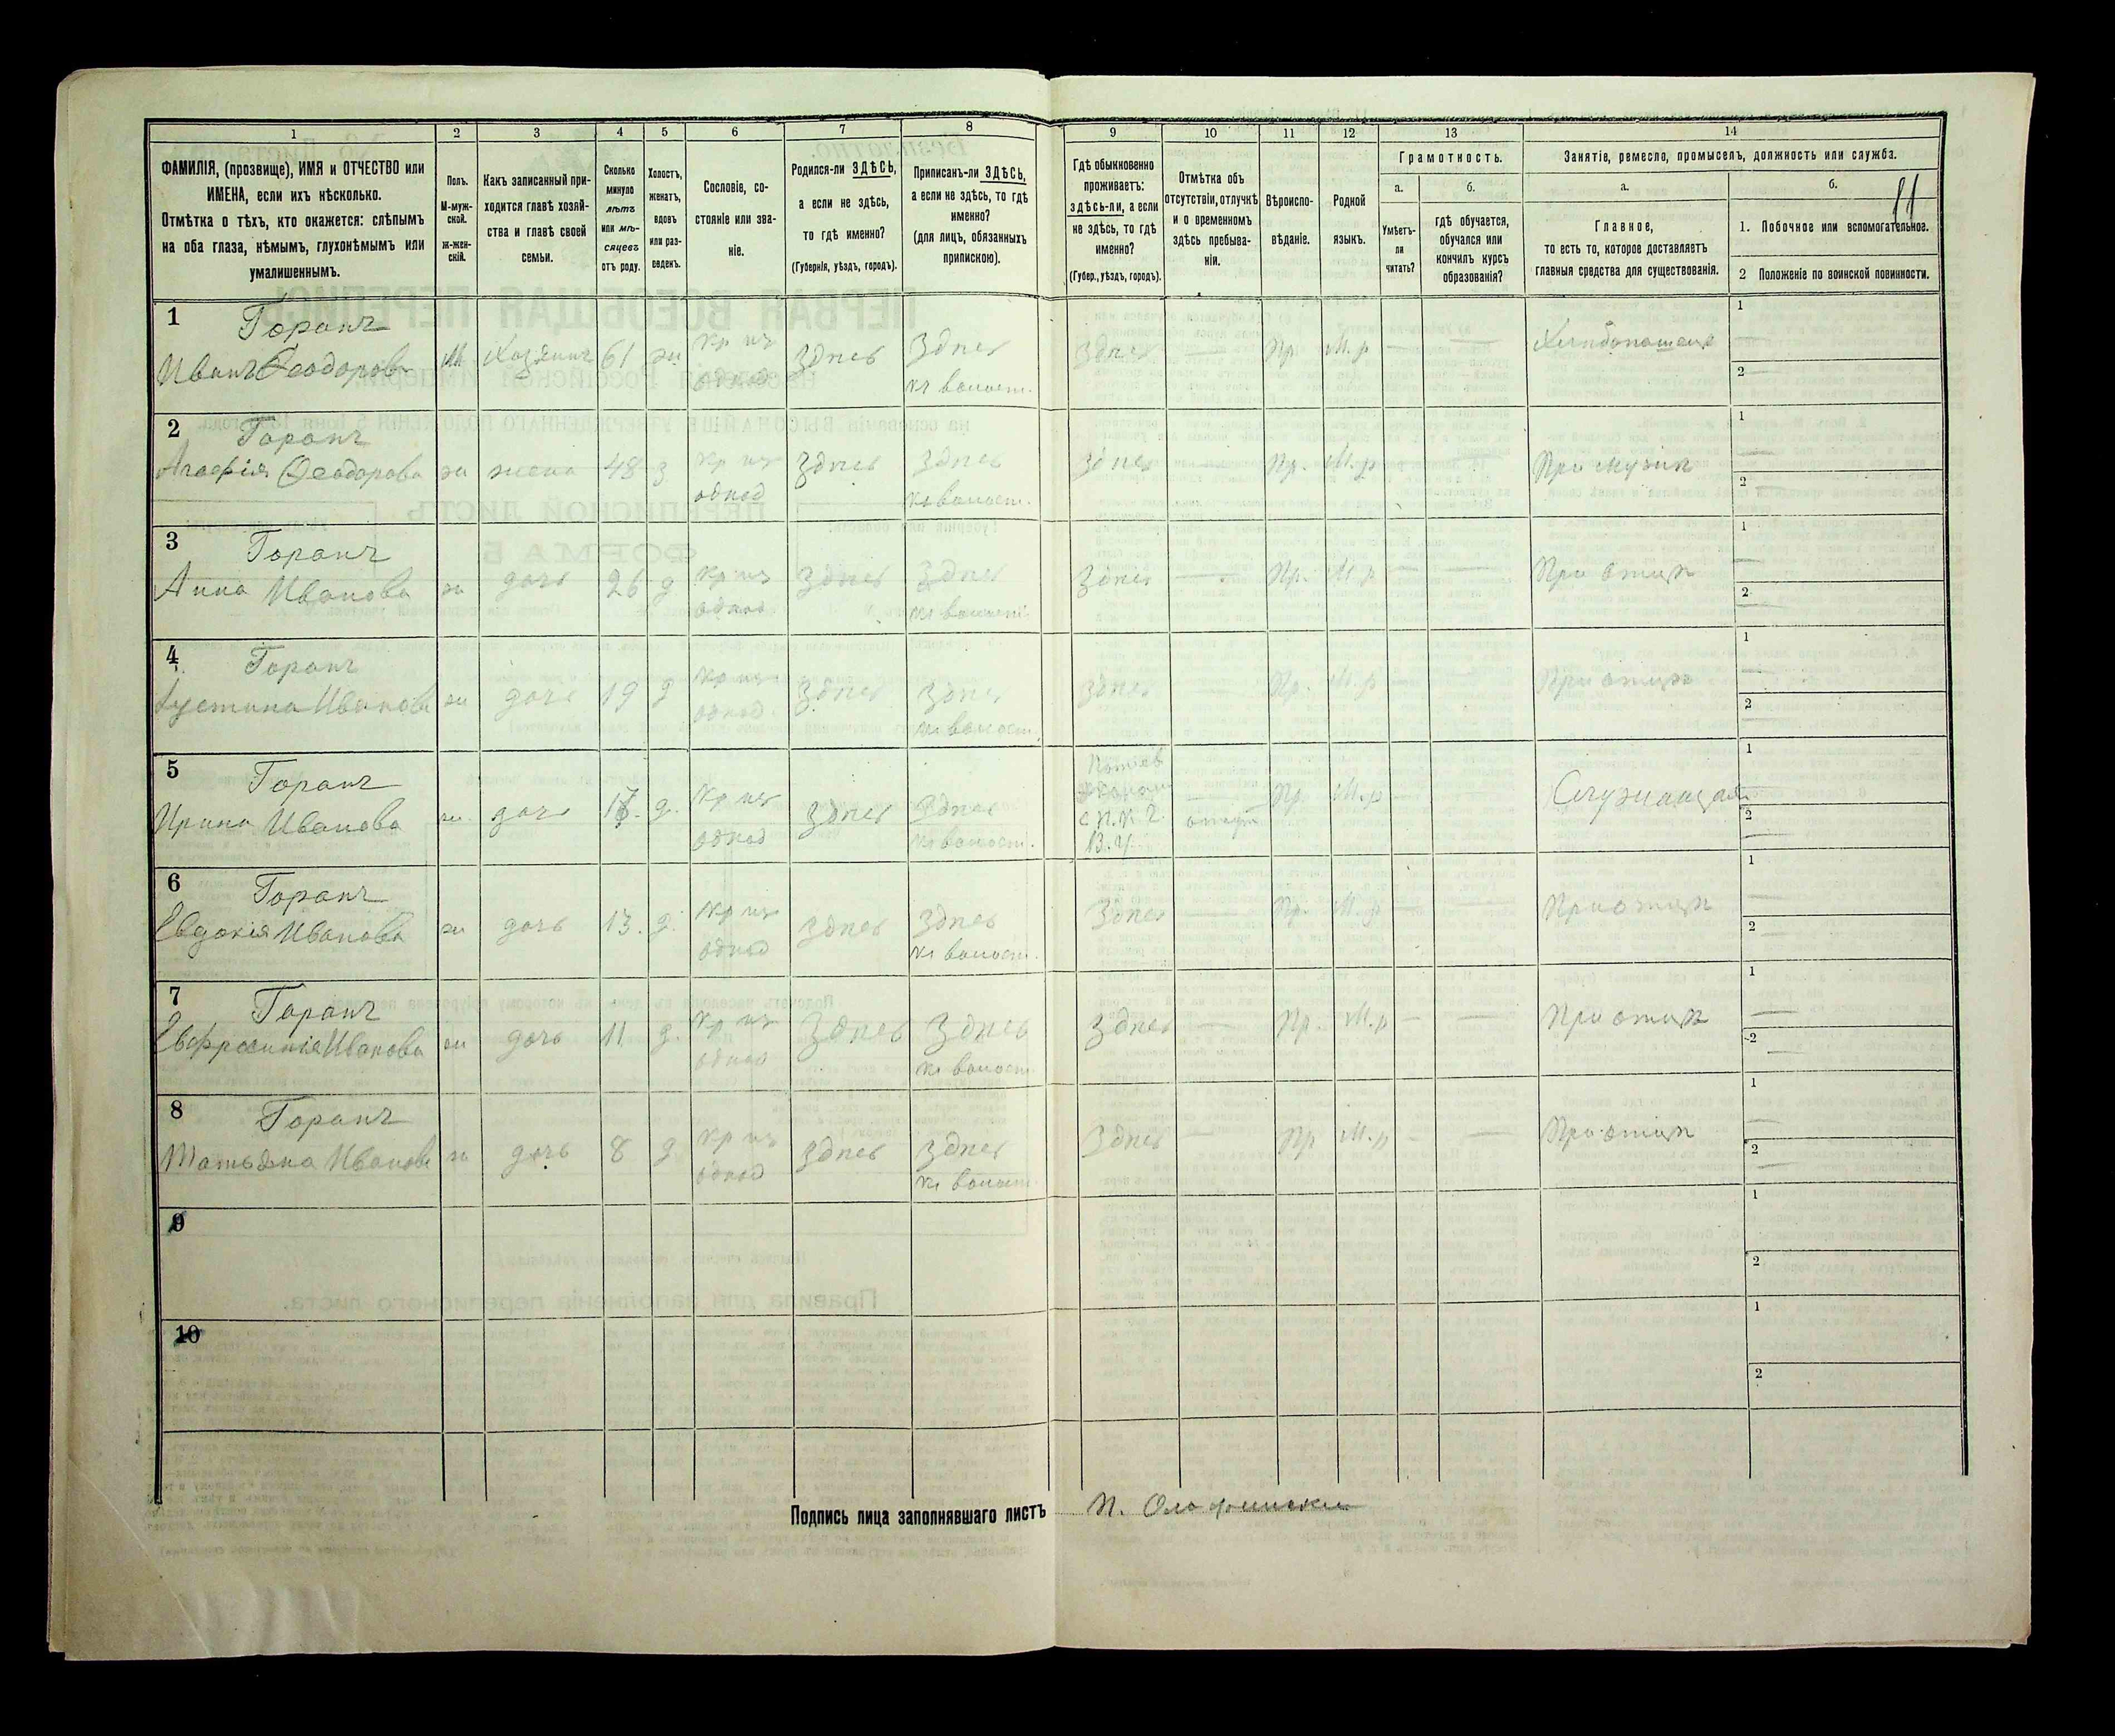 11
1 2 3 4 5 6 7 8 9 10 11 12 13 14
ФАМИЛІЯ, (прозвище), ИМЯ и ОТЧЕСТВО или
ИМЕНА, если ихъ нѣсколько.
Отмѣтка о тѣхъ, кто окажется: слѣпымъ
на оба глаза, нѣмымъ, глухонѣмымъ или
умалишеннымъ.
Полъ.
М-муж-
ской.
ж-жен-
скій.
Какъ записанный при-
ходится главѣ хозяй-
ства и главѣ своей
семьи.
Сколько
минуло
лѣтъ
или мѣ-
сяцевъ
отъ роду.
Холостъ,
женатъ,
вдовъ
или раз-
веденъ.
Сословіе, со-
стояніе или зва-
ніе.
Родился-ли ЗДѢСЬ,
а если не здѣсь,
то гдѣ именно?
(Губернія, уѣздъ, городъ).
Приписанъ-ли ЗДѢСЬ,
а если не здѣсь, то гдѣ
именно?
(для лицъ, обязанныхъ
припискою).
Гдѣ обыкновенно
проживаетъ:
здѣсь-ли, а если
не здѣсь, то гдѣ
именно?
(Губер., уѣздъ, городъ).
Отмѣтка объ
отсутствіи, отлучкѣ
и о временномъ
здѣсь пребыва-
ніи.
Вѣроиспо-
вѣданіе.
Родной
языкъ.
Грамотность.
а.
Умѣетъ-
ли
читать?
б.
гдѣ обучается,
обучался или
кончилъ курсъ
образованія?
Занятіе, ремесло, промыселъ, должность или служба.
а.
Главное,
то есть то, которое доставляетъ
главныя средства для существованія.
б.
1. Побочное или вспомогательное.
2 Положеніе по воинской повинности.
1 Горанъ
Иванъ Ѳеодоровъ М Хозяинъ 61 ж. Кр изъ однод Здѣсь Здѣсь къ волост. Здѣсь — Пр. М.р — — Хлѣбопашецъ 1 2
2 Горанъ
Агафія Ѳеодорова ж жена 48 з Кр изъ однод Здѣсь Здѣсь къ волост. Здѣсь — Пр. М.р — — При мужѣ 1 2
3 Горанъ
Анна Иванова ж дочь 26 д Кр изъ однод Здѣсь Здѣсь къ волост. Здѣсь — Пр. М.р — — При отцѣ 1 2
4 Горанъ
Іустина Иванова ж дочь 19 д Кр изъ однод Здѣсь Здѣсь къ волост. Здѣсь — Пр. М.р — — При отцѣ 1 2
5 Горанъ
Ирина Иванова ж. дочь д. Кр изъ однод Здѣсь Здѣсь къ волост. — Пр. М.р Служащая 1 2
6 Горанъ
Евдокія Иванова ж дочь 13. д. Кр изъ однод Здѣсь Здѣсь къ волост. Здѣсь — Пр. М.р — — При отцѣ 1 2
7 Горанъ
Евфросинія Иванова ж дочь 11 д. Кр изъ однод Здѣсь Здѣсь къ волост. Здѣсь — Пр. М.р — — При отцѣ 1 2
8 Горанъ
Татьяна Иванова ж дочь 8 д Кр изъ однод Здѣсь Здѣсь къ волост. Здѣсь — Пр М.р — — При отцѣ 1 2
9 1 2
10 1 2
Подпись лица заполнявшаго листъ П.